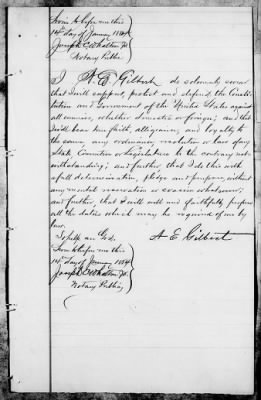 Sworn to before me this
14th day of January 1864
Joseph C Whallon Jr
Notary Public
I A. E. Gilbert do solemnly swear
that I will support, protect and defend, the Consti
tution and Government of the United States against
all enemies, whether domestic or foreign; and that
I will bear true faith, allegiance, and loyalty to
the same, any ordinance, resolution or law of any
State Convention or Legislature to the contrary not-
withstanding; and further, that I do this with
a full determination, pledge and purpose, without
any mental reservation or evasion whatsoever;
and further, that I will well and faithfully perform
all the duties which may be required of me by
law.
So help me God.
A E Gilbert
Sworn to before me this
14th day of January 1864
Joseph C Whallon Jr
Notary Public